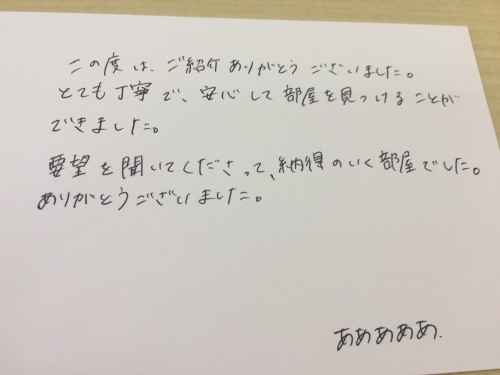 この度は、ご紹介ありがとうございました。
とても丁寧で、安心して部屋を見つけることが
できました。
要望を聞いてくださって、納得のいく部屋でした。
ありがとうございました。
あああああ.